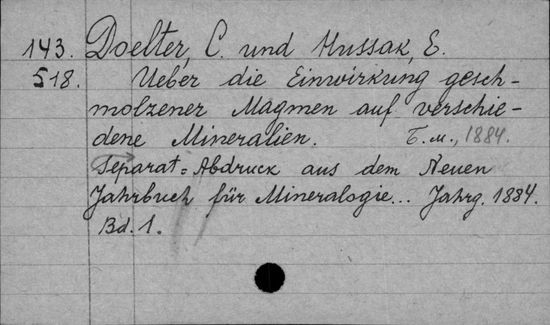 143. Doelter, C. und Hussak, E.
518. Ueber die Einwirkung gesch-
molzener Magmen auf verschie-
dene Mineralien. Б.м., 1884.
Separat=Abdruck aus dem Neuen
Jahrbuch für Mineralogie... Jahrg. 1884.
Bd. 1.